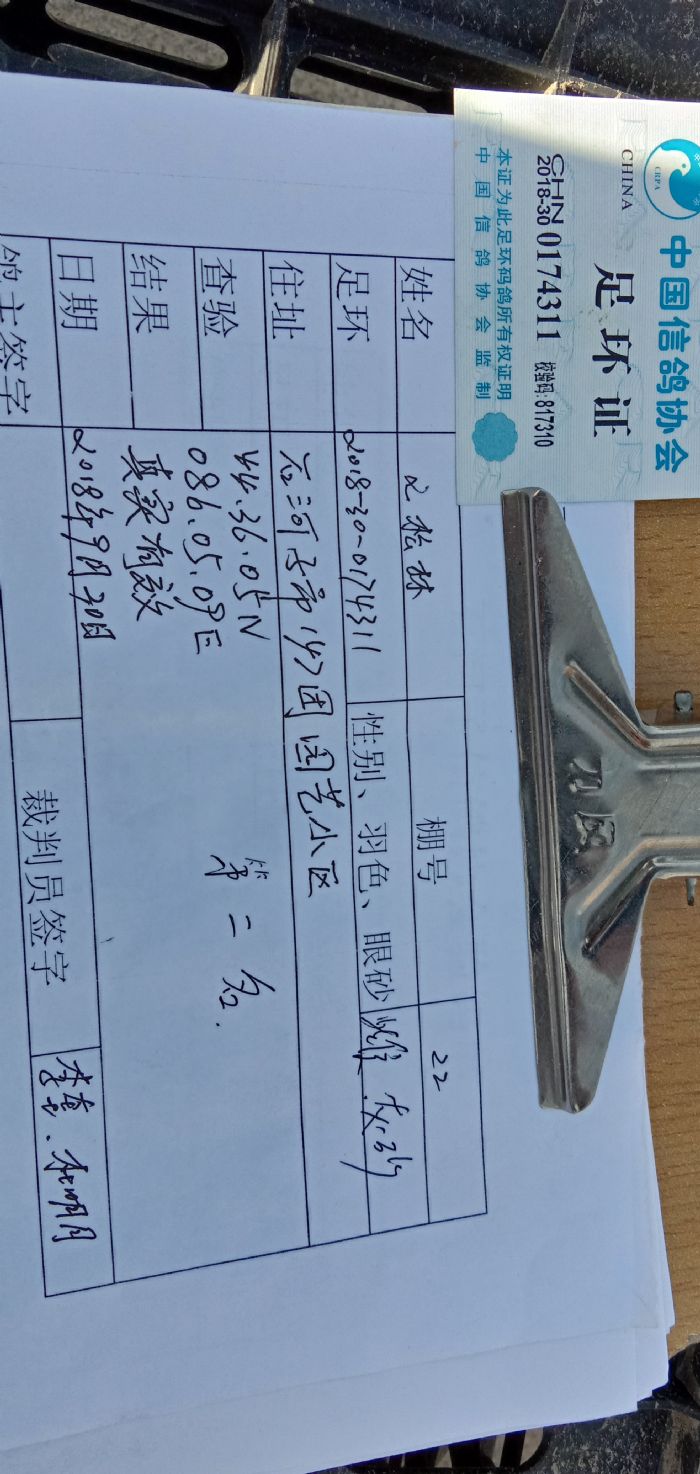 中国信鸽协会
CRPA
CHINA
足环证
CHN
2018-30 0174311 校验码:817310
本证为此足环码鸽所有权证明
中国信鸽协会监制
刀风
姓名 文松林 棚号 22
足环 2018-30-0174311 性别、羽色、眼砂 雄
住址 石河子市147团园艺小区
查验 44.36.05N
086.05.09E
结果 真实有效 第二名.
日期 2018年9月20日 裁判员签字
鸽主签字